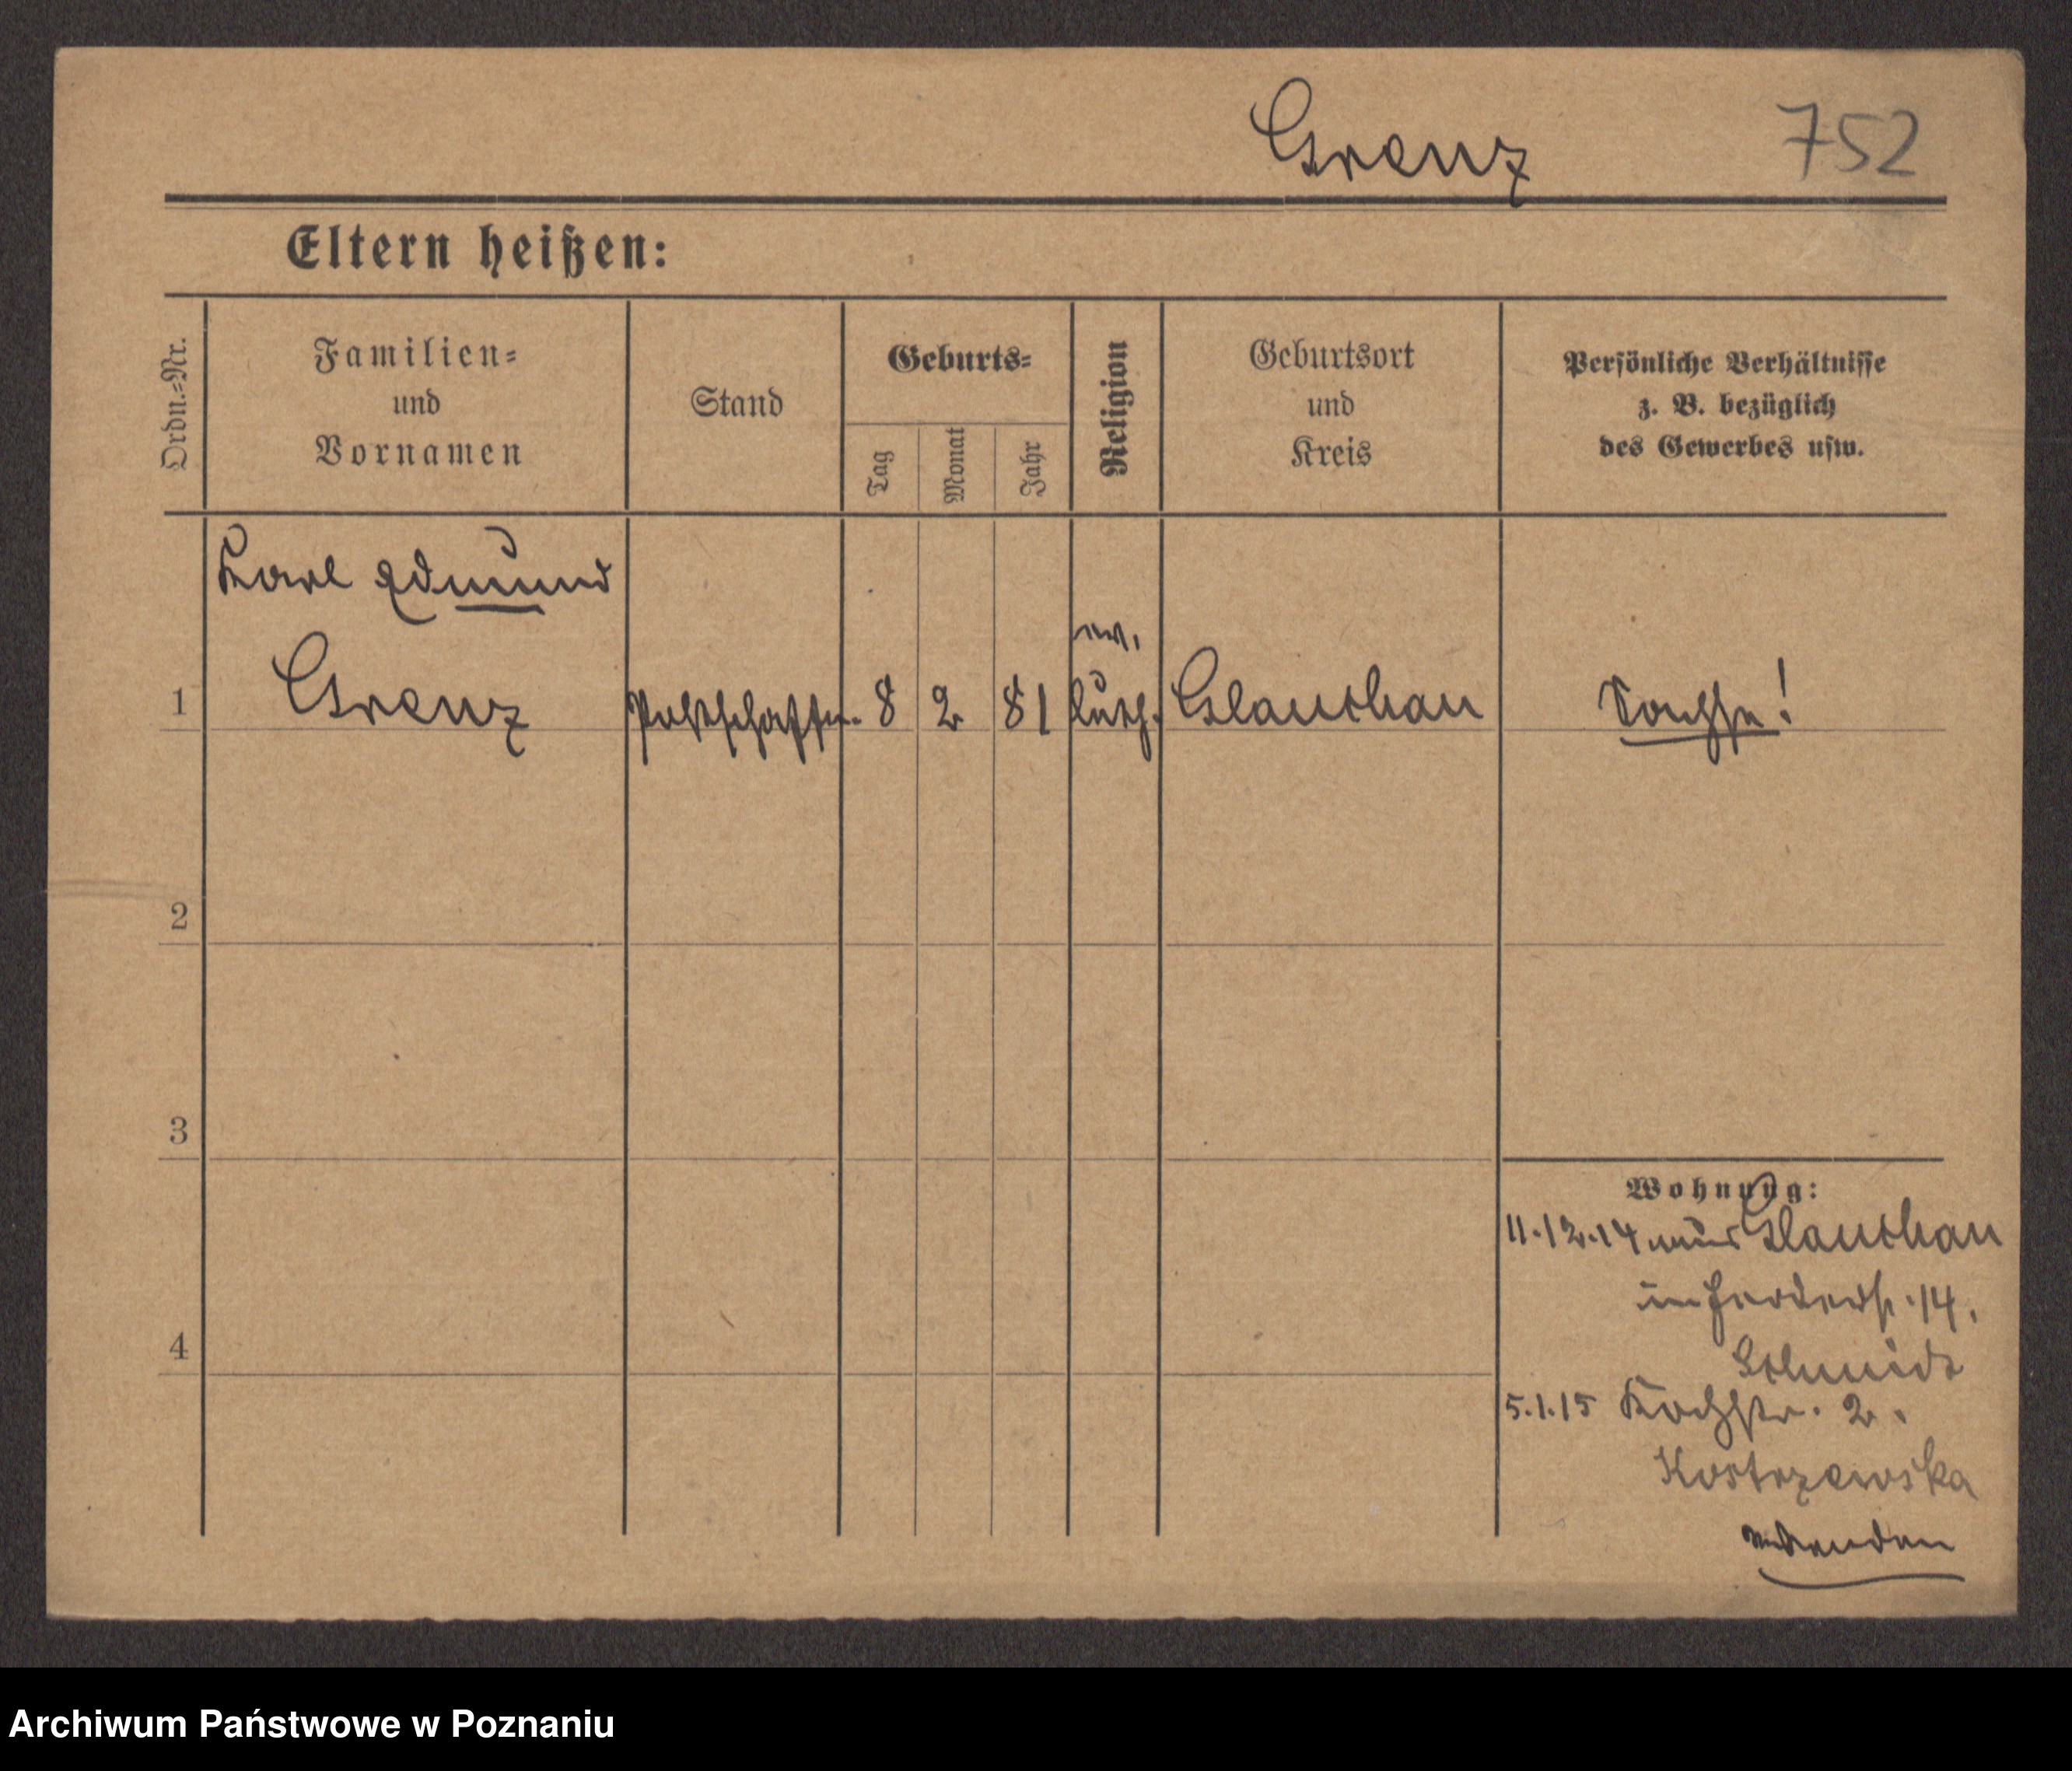 Grenz 752
Eltern heißen:
Ordn.=Nr.
Familien=
und
Vornamen
Stand
Geburts=
Tag
Monat
Jahr
Religion
Geburtsort
und
Kreis
Persönliche Verhältnisse
z. B. bezüglich
des Gewerbes usw.
Karl Edmund
ev.
1 Grenz Postschaffn. 8 2 81 luth. Glauchau Sachse!
2
3
4
Wohnung:
11.12.14 aus Glauchau
14.
Schmidt
5.1.15 Kochstr. 2.
Kostrzewska
Archiwum Państwowe w Poznaniu